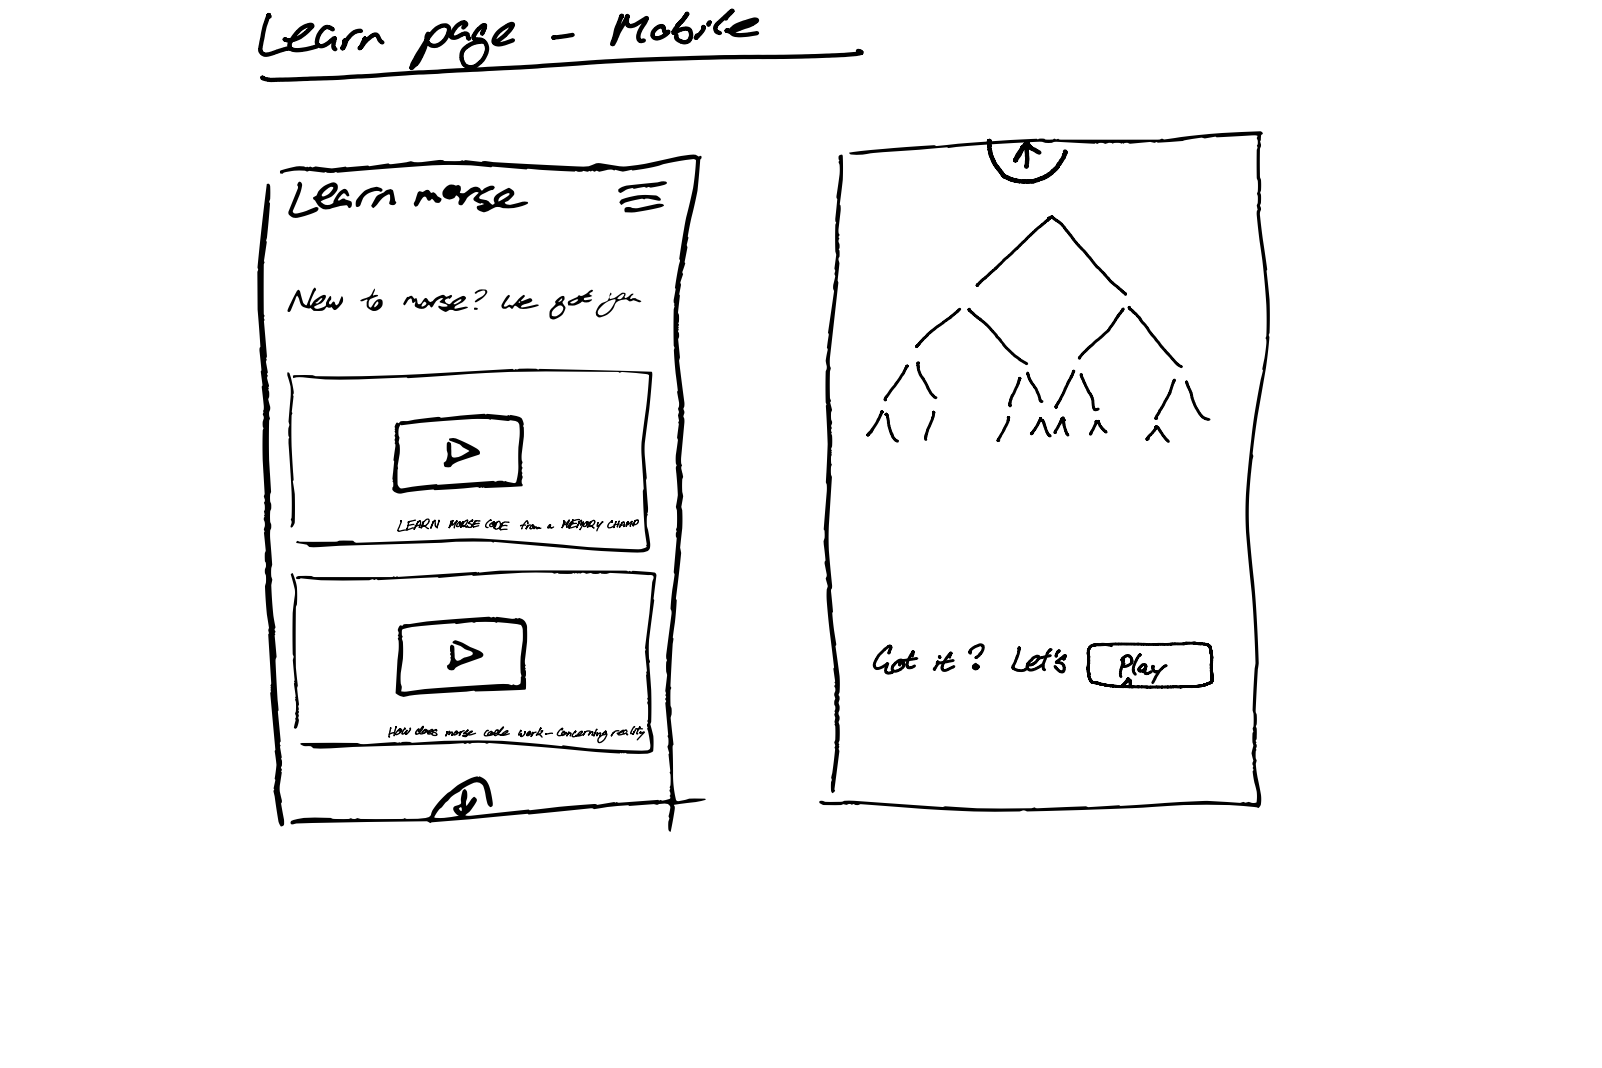 Learn page - Mobile
Learn morse
New to morse? we got you
LEARN MORSE CODE from a MEMORY CHAMP
How does morse code work - Concerning reality
Got it? Let's Play